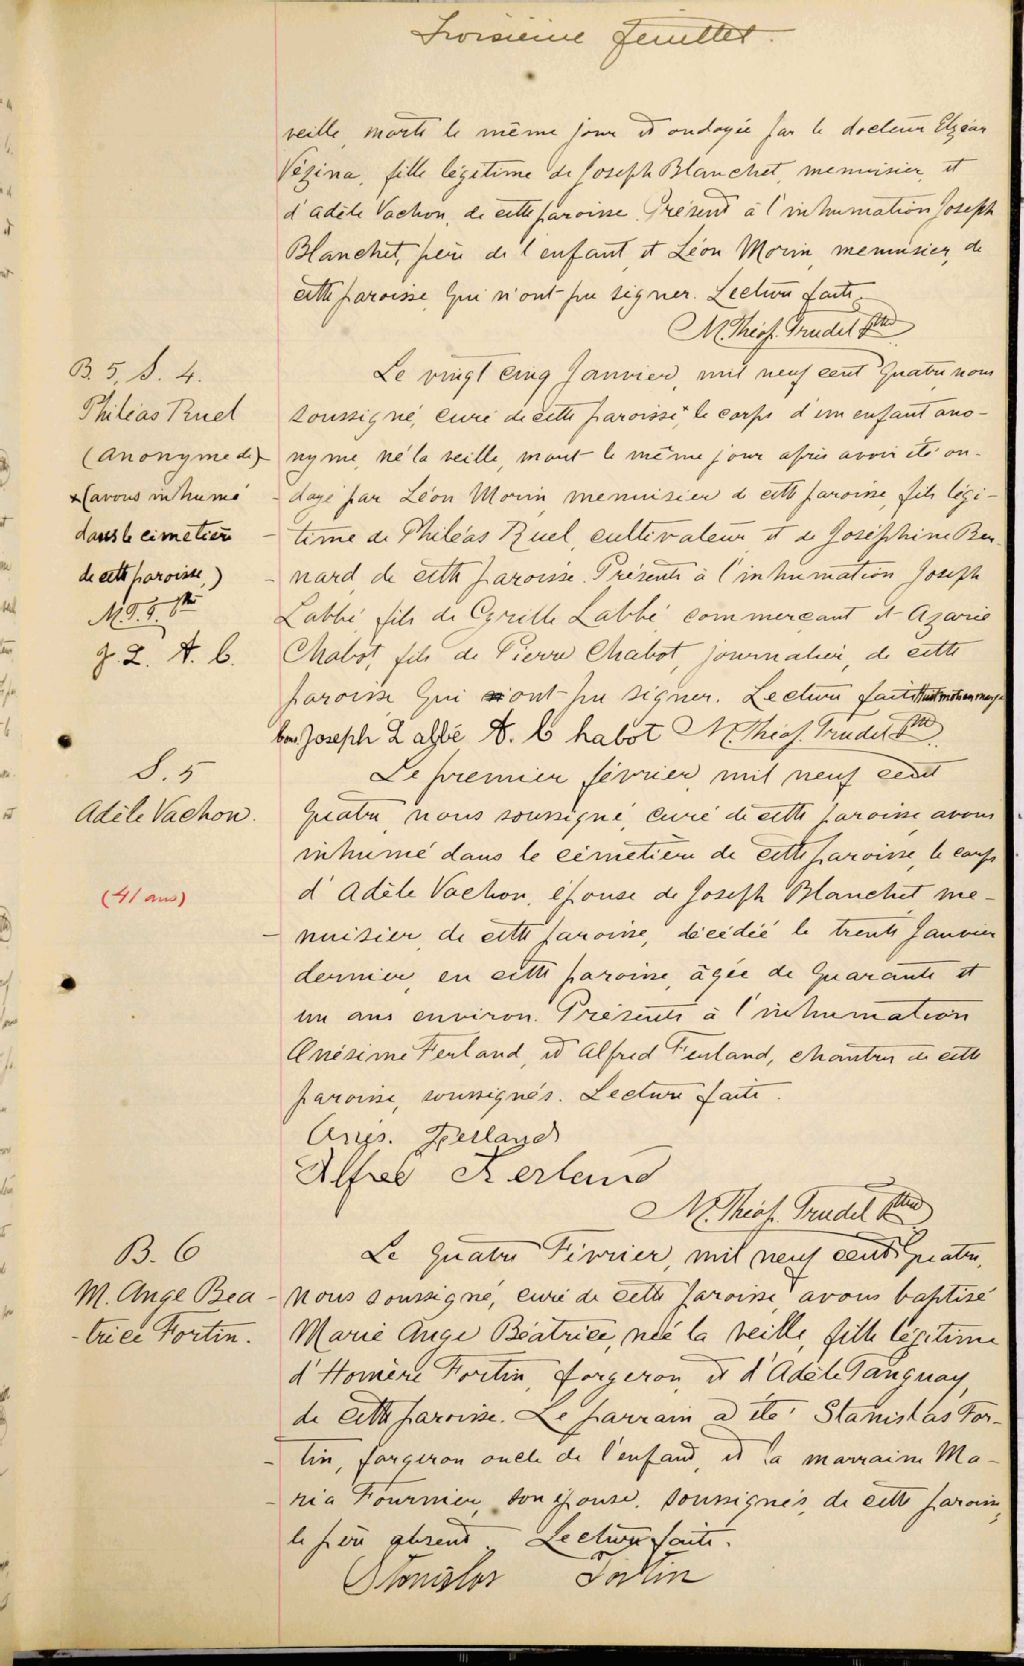 Troisième feuillet.
veille, morte le même jour et ondoyée par le docteur Elzéar
Vézina, fille légitime de Joseph Blanchet, menuisier, et
d'Adèle Vachon, de cette paroisse. Présents à l'inhumation Joseph
Blanchet, père de l'enfant, et Léon Morin, menuisier, de
cette paroisse, qui n'ont pu signer. Lecture faite.
M. Théop. Trudel Ptre
B. 5, S. 4.
Philéas Ruel
(Anonyme de)
x (avons inhumé
dans le cimetière
de cette paroisse,)
M. T. T. Ptre
J L. A. C.
Le vingt cinq Janvier, mil neuf cent quatre, nous
soussigné, curé de cette paroisse x le corps d'un enfant ano-
nyme, né la veille, mort le même jour après avoir été on-
doyé par Léon Morin, menuisier de cette paroisse, fils légi-
time de Philéas Ruel, cultivateur, et de Joséphine Ber-
nard, de cette paroisse. Présents à l'inhumation Joseph
Labbé, fils de Cyrille Labbé commerçant et Azarie
Chabot, fils de Pierre Chabot, journalier, de cette
paroisse qui ont pu signer. Lecture faite. Huit mots en marge
bons Joseph Labbé A. Chabot M. Théop. Trudel Ptre
S. 5
Adèle Vachon.
(41 ans)
Le premier février, mil neuf cent
quatre, nous soussigné, curé de cette paroisse, avons
inhumé dans le cimetière de cette paroisse, le corps
d'Adèle Vachon, épouse de Joseph Blanchet, me-
nuisier, de cette paroisse, décédée le trente Janvier
dernier, en cette paroisse, âgée de quarante et
un ans environ. Présents à l'inhumation
Onésime Ferland, et Alfred Ferland, chantres de cette
paroisse, soussignés. Lecture faite.
Onés. Ferland
Alfred Ferland
M. Théop. Trudel Ptre
B. 6
M. Ange Béa-
-trice Fortin.
Le quatre Février, mil neuf cent quatre,
nous soussigné, curé de cette paroisse, avons baptisé
Marie Ange Béatrice, née la veille, fille légitime
d'Homère Fortin, forgeron, et d'Adèle Tanguay,
de cette paroisse. Le parrain a été Stanislas For-
tin, forgeron oncle de l'enfant, et la marraine Ma-
ria Fournier, son épouse, soussignés, de cette paroisse,
le père absent. Lecture faite.
Stanislas Fortin